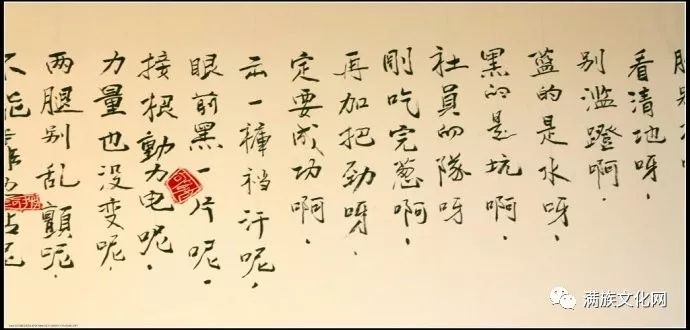 看清地呀，
别滥蹬啊，
蓝的是水呀，
黑的是坑啊，
社員的隊呀
剛吃完葱啊，
再加把劲呀，
定要成功啊，
一褲裆汗呢，
眼前黑一片呢，
接根動力电呢，
力量也没变呢，
两腿别乱顫呢，
不能
满族文化网